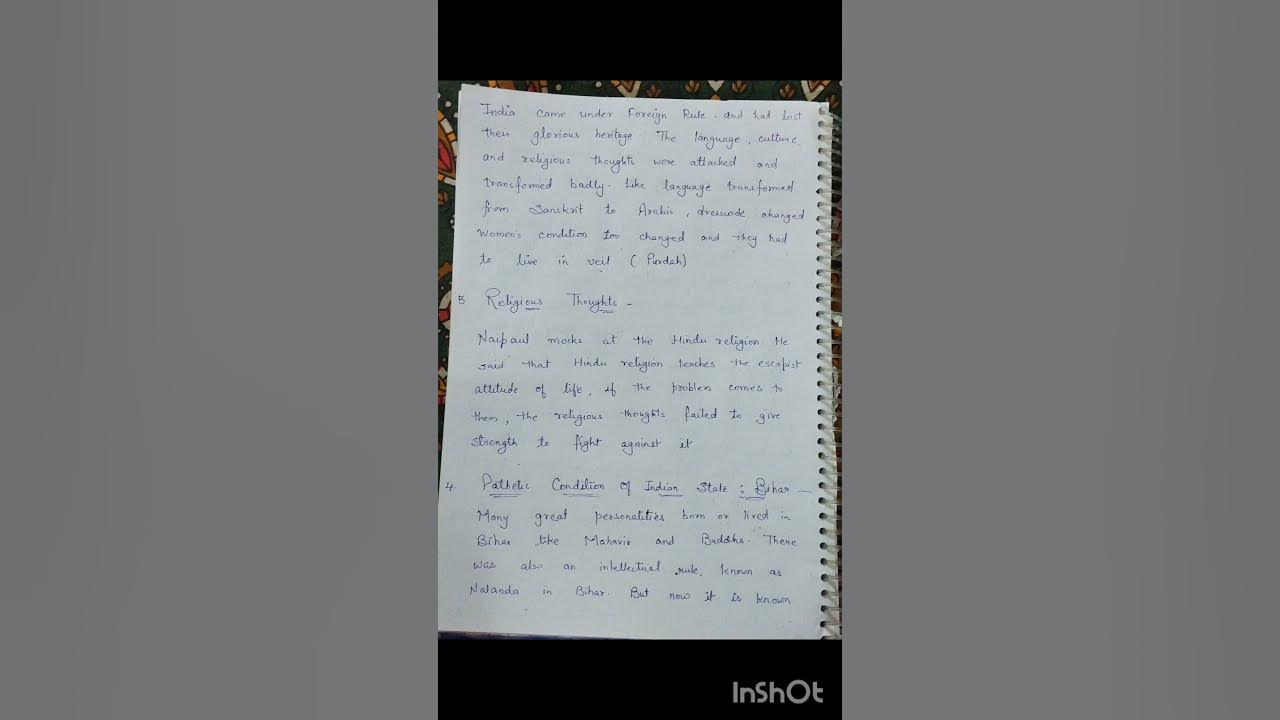 India came under Foreign Rule. and had lost
their glorious heritage. The language, culture,
and religious thoughts were attacked and
transformed badly. Like language transformed
from Sanskrit to Arabic, dresscode changed
Women's condition too changed and they had
to live in veil (Purdah)
3 Religious Thoughts -
Naipaul mocks at the Hindu religion He
said that Hindu religion teaches the escapist
attitude of life, if the problem comes to
them, the religious thoughts failed to give
strength to fight against it
4. Pathetic Condition of Indian State : Bihar —
Many great personalities born or lived in
Bihar like Mahavir and Buddha. There
was also an intellectual rule, known as
Nalanda in Bihar. But now it is known
InShOt